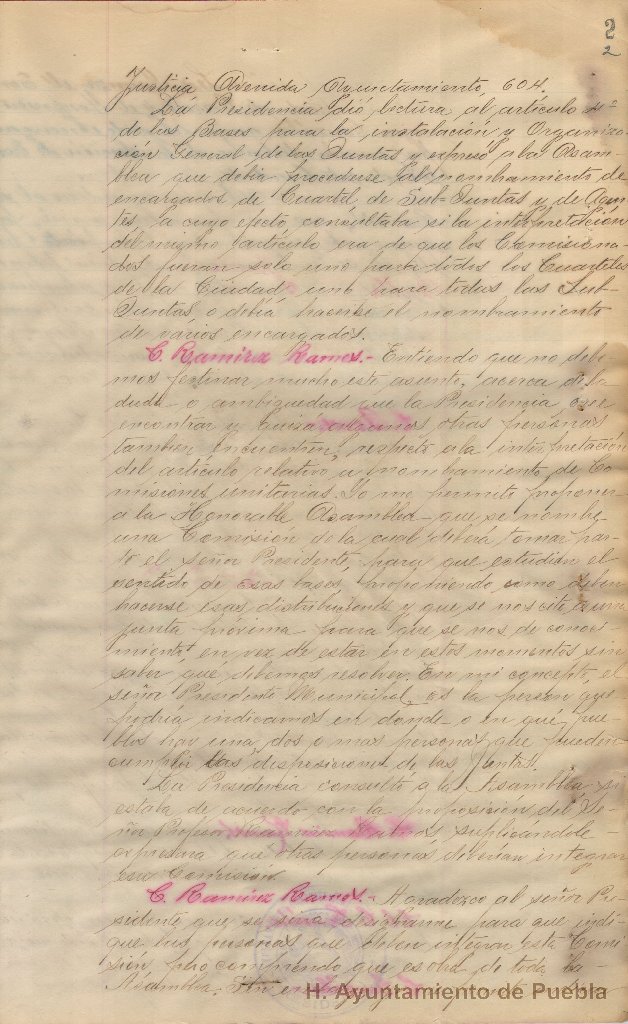 2
2
Justicia Avenida Ayuntamiento, 604.
La Presidencia dió lectura al artículo 4º
de las Bases para la instalación y Organiza-
ción General de las Juntas y expresó a la Asam-
blea que debía procederse al nombramiento de
encargados de Cuartel de Sub-Juntas y de Agen-
tes, a cuyo efecto, consultaba si la interpretación
del mismo artículo era de que los Comisiona-
dos fueran solo uno para todos los Cuarteles
de la Ciudad, uno para todas las Sub-
Juntas o debía hacerse el nombramiento
de varios encargados.
C. Ramírez Ramos.- Entiendo que no debe-
mos festinar mucho este asunto, acerca de la
duda o ambigüedad que la Presidencia cree
encontrar y quizá algunas otras personas
también encuentren, respecto a la interpretación
del artículo relativo a nombramiento de Co-
misiones unitarias. Yo me permito proponer
a la Honorable Asamblea que se nombre
una Comisión de la cual deberá tomar par-
te el señor Presidente, para que estudian el
sentido de esas bases, proponiendo como deben
hacerse esas distribuciones y que se nos cite a una
junta próxima para que se nos dé conoci-
miento en vez de estar en estos momentos sin
saber que debemos resolver. En mi concepto, el
señor Presidente Municipal es la persona que
podría indicarnos en donde o en qué pue-
blos hay una, dos o mas personas que pueden
cumplir las disposiciones de las Juntas.
La Presidencia consultó a la Asamblea si
estaba de acuerdo con la proposición del Se-
ñor Profesor Ramírez Ramos suplicándole
expresara que otras personas deberían integrar
esa Comisión.
C. Ramírez Ramos.- Agradezco al señor Pre-
sidente que se sirva designarme para que indi-
que las personas que deben integrar esta Comi-
sión, pero comprendo que es obra de toda la
Asamblea. Sin embargo,
H. Ayuntamiento de Puebla